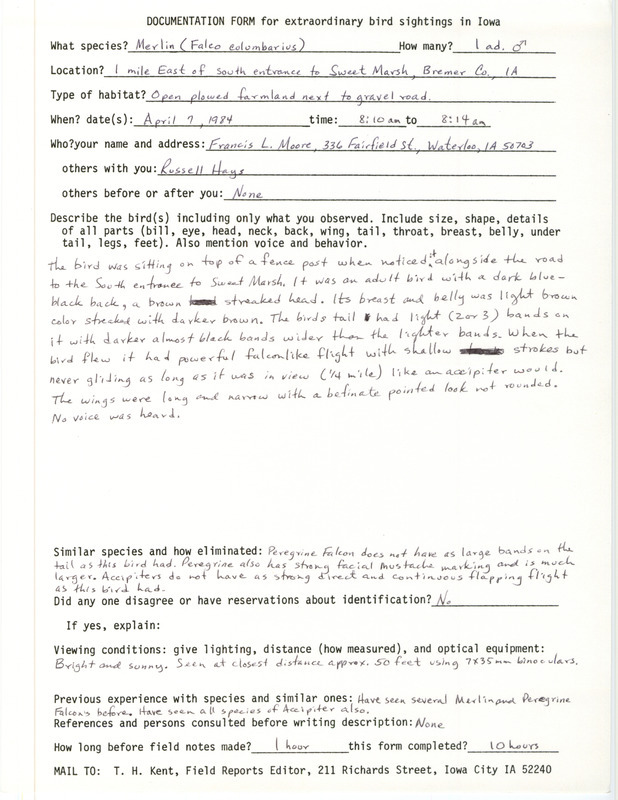 DOCUMENTATION FORM for extraordinary bird sightings in Iowa
What species? Merlin (Falco columbarius) How many? 1 ad. ♂
Location? 1 mile East of south entrance to Sweet Marsh, Bremer Co., IA
Type of habitat? Open plowed farmland next to gravel road.
When? date(s): April 7, 1984 time: 8:10am to 8:14am
Who?your name and address: Francis L. Moore, 336 Fairfield St., Waterloo, IA 50703
others with you: Russell Hays
others before or after you: None
Describe the bird(s) including only what you observed. Include size, shape, details
of all parts (bill, eye, head, neck, back, wing, tail, throat, breast, belly, under
tail, legs, feet). Also mention voice and behavior.
The bird was sitting on top of a fence post when noticed it alongside the road
to the South entrance to Sweet Marsh. It was an adult bird with a dark blue-
black back, a brown streaked head. Its breast and belly was light brown
color streaked with darker brown. The birds tail had light (2 or 3) bands on
it with darker almost black bands wider than the lighter bands. When the
bird flew it had powerful falconlike flight with shallow strokes but
never gliding as long as it was in view (1/4 mile) like an accipiter would.
The wings were long and narrow with a definate pointed look not rounded.
No voice was heard.
Similar species and how eliminated: Peregrine Falcon does not have as large bands on the
tail as this bird had. Peregrine also has strong facial mustache marking and is much
larger. Accipiters do not have as strong direct and continuous flapping flight
as this bird had.
Did any one disagree or have reservations about identification? No
If yes, explain:
Viewing conditions: give lighting, distance (how measured), and optical equipment:
Bright and sunny. Seen at closest distance approx. 50 feet using 7X35mm binoculars.
Previous experience with species and similar ones: Have seen several Merlin and Peregrine
Falcons before. Have seen all species of Accipiter also.
References and persons consulted before writing description: None
How long before field notes made? 1 hour this form completed? 10 hours
MAIL TO: T. H. Kent, Field Reports Editor, 211 Richards Street, Iowa City IA 52240